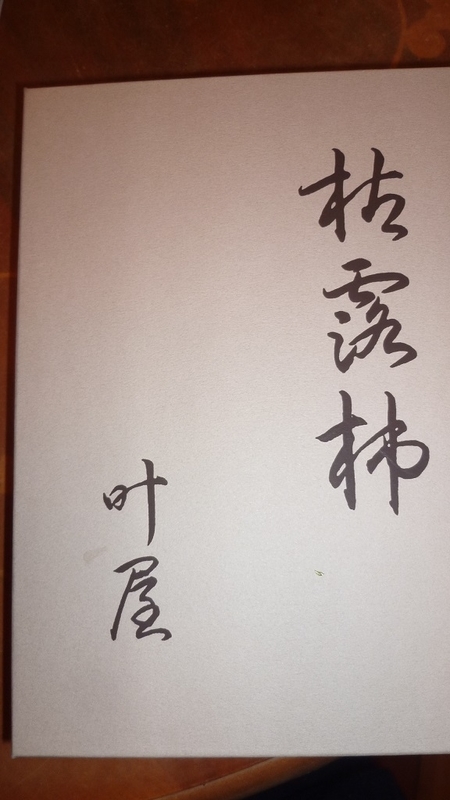 枯露柿
叶屋